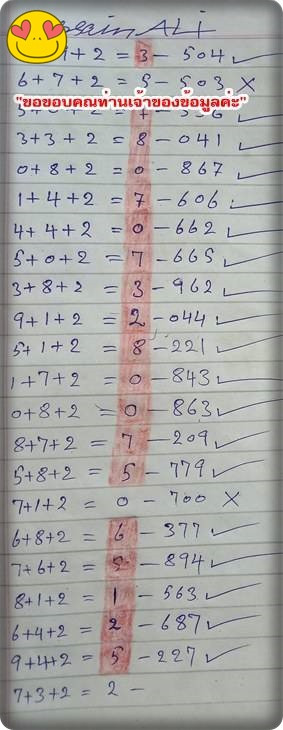 ALi
+ 2 = 3 - 504 ✓
6 + 7 + 2 = 5 - 503 ×
"ขอขอบคุณท่านเจ้าของข้อมูลค่ะ"
3 + 3 + 2 = 8 - 041 ✓
0 + 8 + 2 = 0 - 867 ✓
1 + 4 + 2 = 7 - 606 ✓
4 + 4 + 2 = 0 - 662 ✓
5 + 0 + 2 = 7 - 665 ✓
3 + 8 + 2 = 3 - 962 ✓
9 + 1 + 2 = 2 - 044 ✓
5 + 1 + 2 = 8 - 221 ✓
1 + 7 + 2 = 0 - 843 ✓
0 + 8 + 2 = 0 - 863 ✓
8 + 7 + 2 = 7 - 209 ✓
5 + 8 + 2 = 5 - 779 ✓
7 + 1 + 2 = 0 - 700 ×
6 + 8 + 2 = 6 - 377 ✓
7 + 6 + 2 = 5 - 894 ✓
8 + 1 + 2 = 1 - 563 ✓
6 + 4 + 2 = 2 - 687 ✓
9 + 4 + 2 = 5 - 227 ✓
7 + 3 + 2 = 2 -